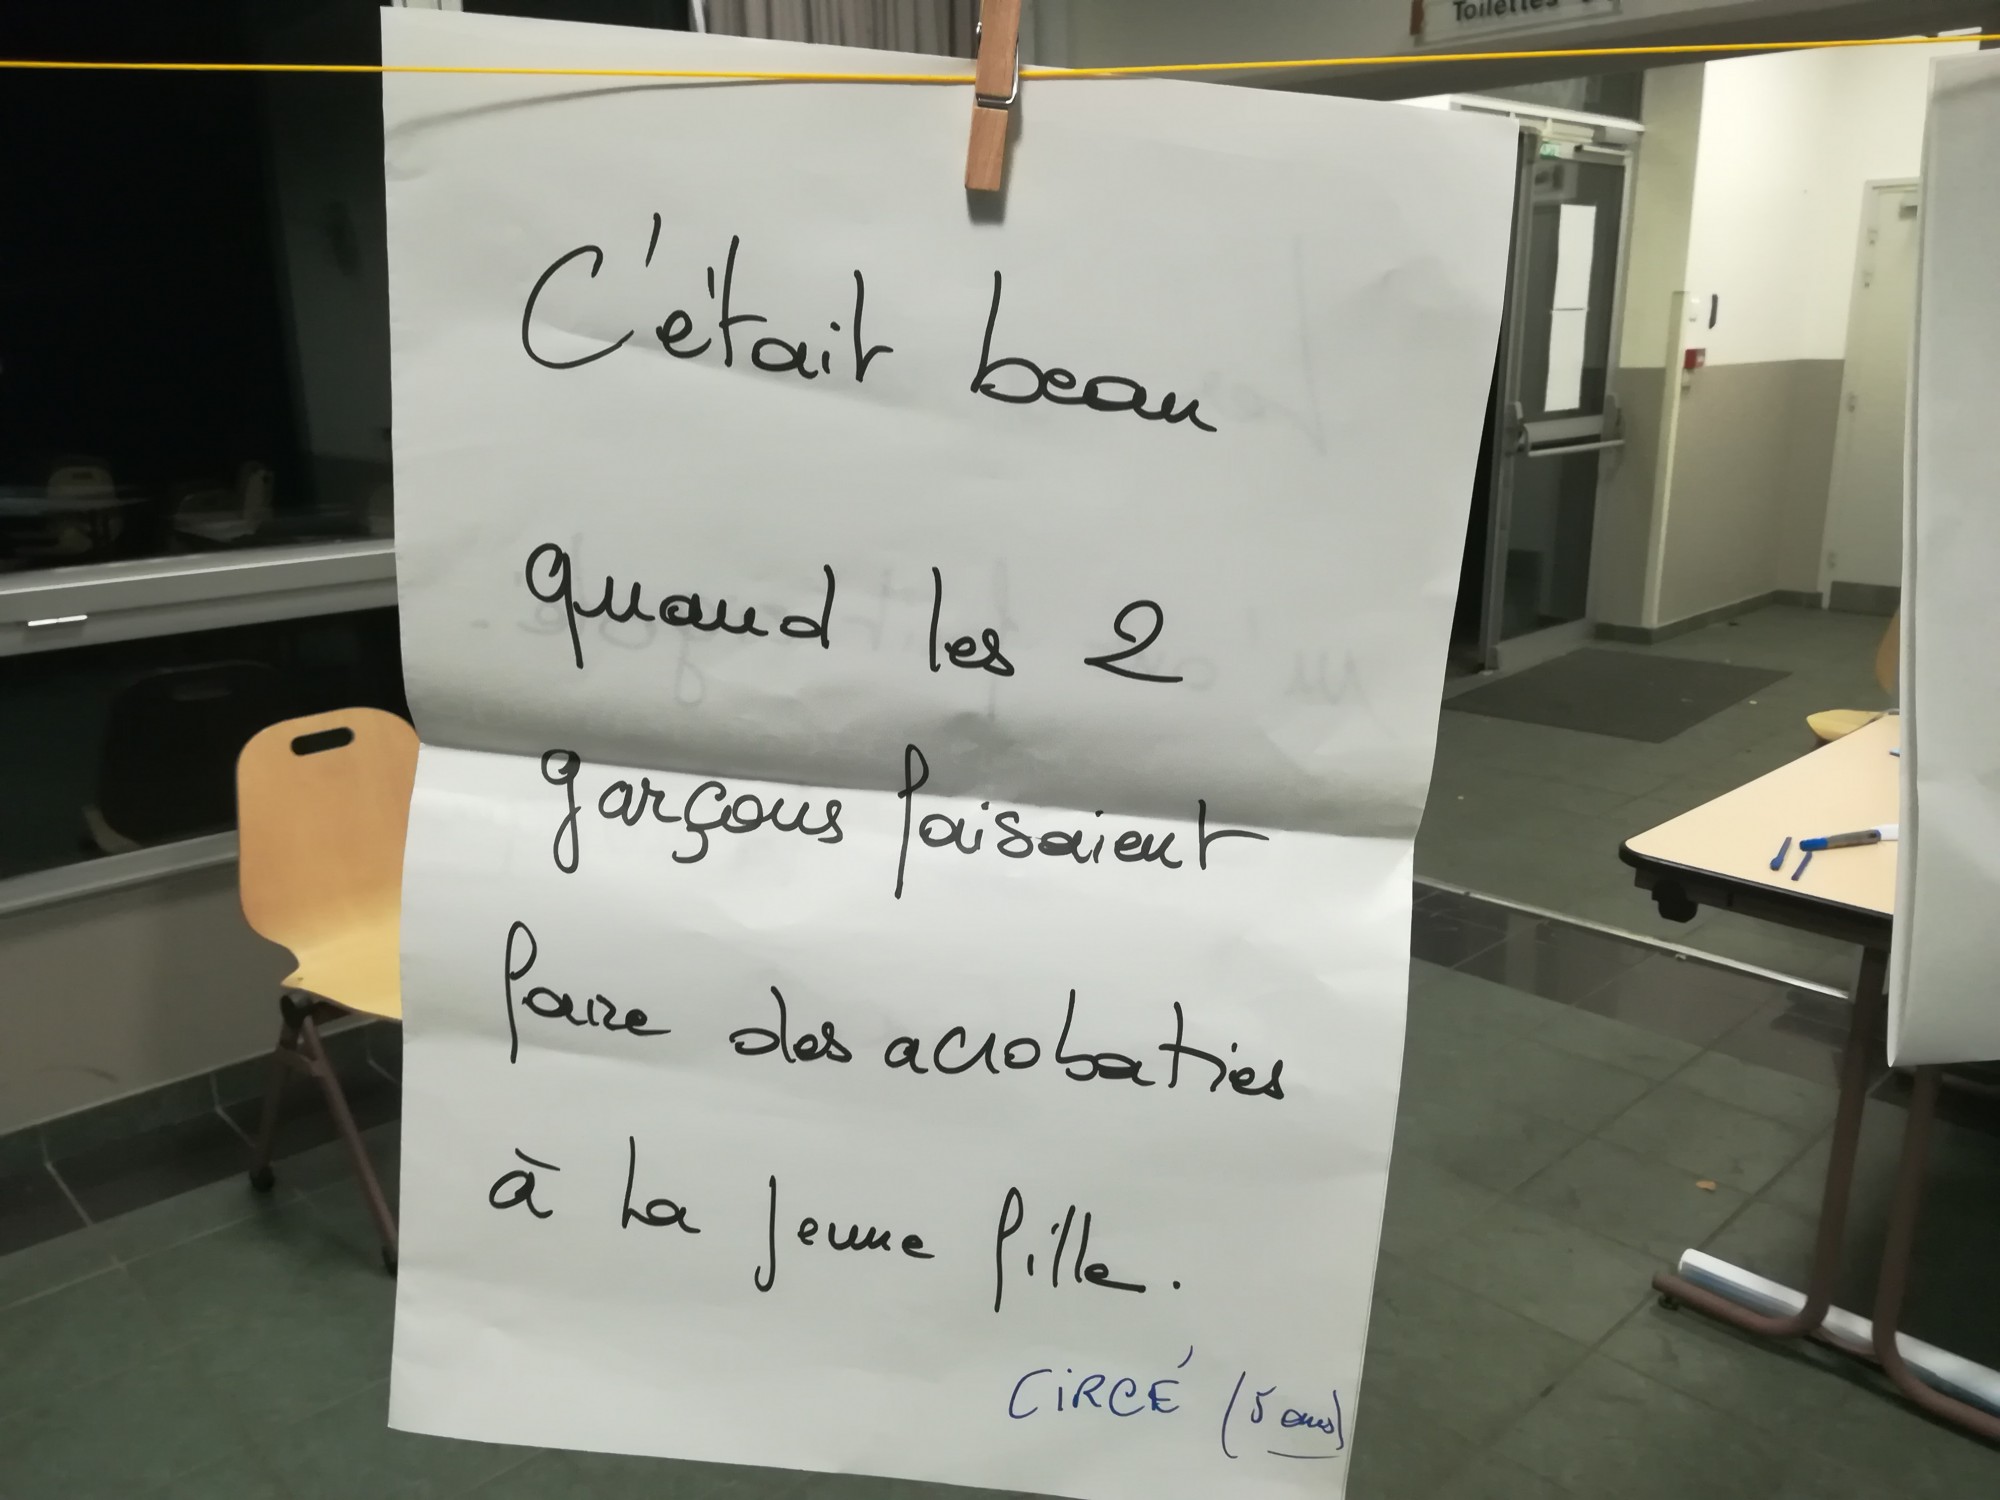 Toilettes
C'était beau
quand les 2
garçons faisaient
faire des acrobaties
à la jeune fille.
CIRCÉ (5 ans)